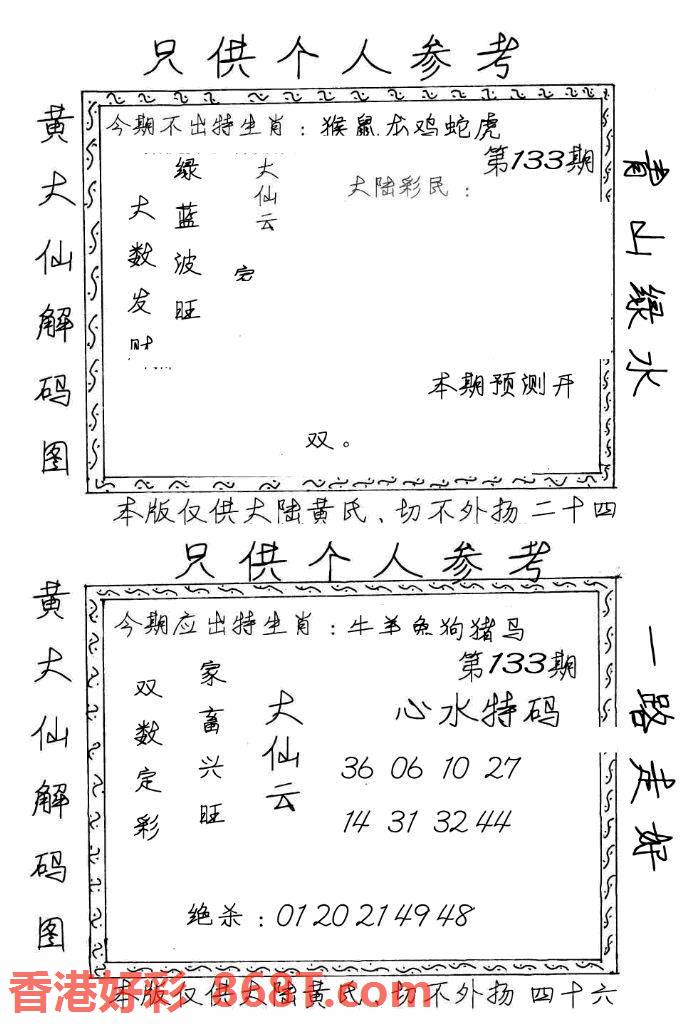 只供个人参考
黄大仙解码图
今期不出特生肖：猴鼠龙鸡蛇虎
第133期
大仙云
绿蓝波旺
大数发财
定
大陆彩民：
本期预测开
双。
青山绿水
本版仅供大陆黄氏、切不外扬二十四
只供个人参考
黄大仙解码图
今期应出特生肖：牛羊兔狗猪马
第133期
双数定彩
家畜兴旺
大仙云
心水特码
36 06 10 27
14 31 32 44
绝杀：01 20 21 49 48
一路走好
本版仅供大陆黄氏、切不外扬 四十六
香港好彩 868T.com